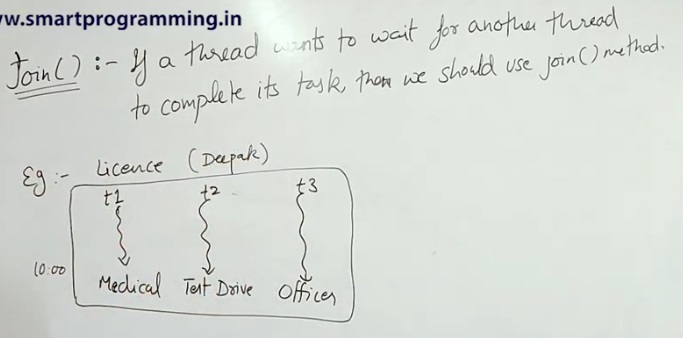 w.smartprogramming.in
Join() :- If a thread wants to wait for another thread
to complete its task, then we should use join() method.
Eg :- Licence (Deepak)
t1 t2 t3
10:00
Medical Test Drive Officer